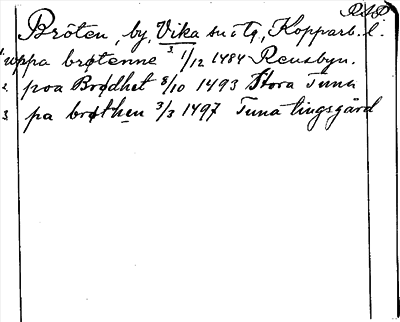 RSD
Bröten, by, Vika sn o tg, Kopparb. l.
1 uppa brøtenne 1/12 1484 Rensbyn.
2. poa Brødhet 8/10 1493 Stora Tuna
3 pa brøthen 3/3 1497 Tuna tingsgård